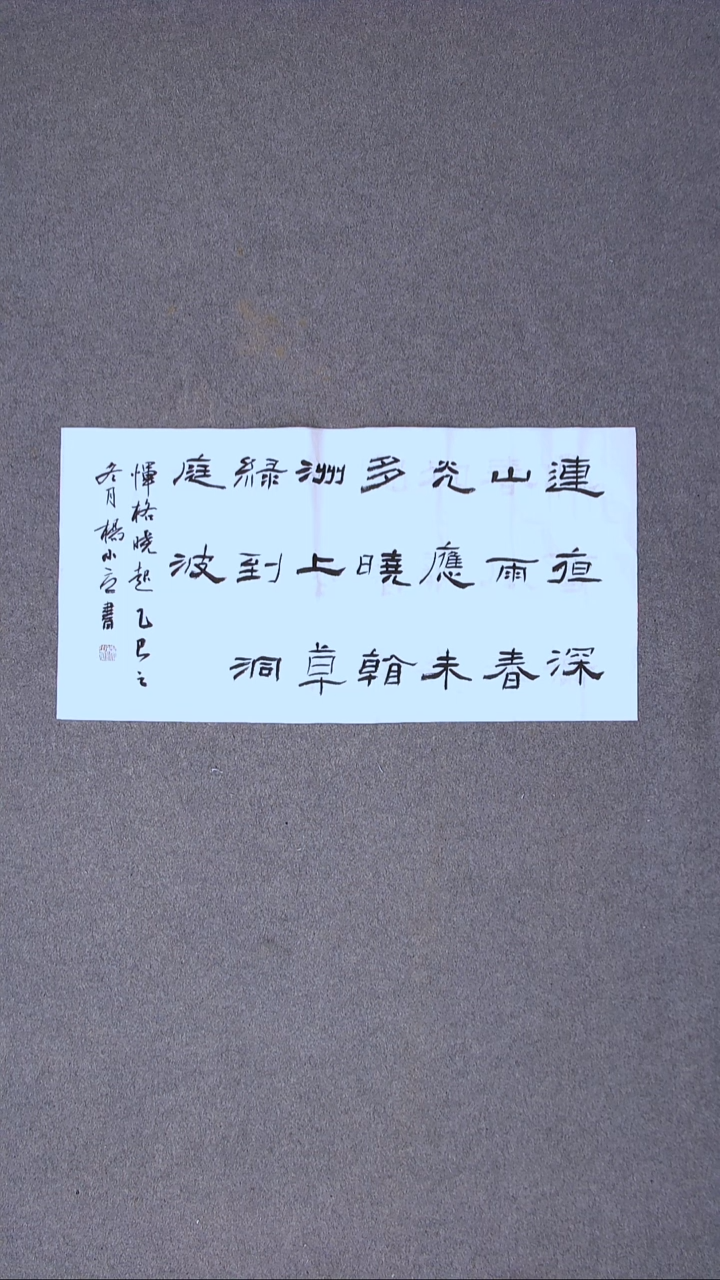 連夜深
山雨春
光應未
多曉看
洲上草
綠到洞
庭波
惲格曉起乙巳之
冬月楊小書